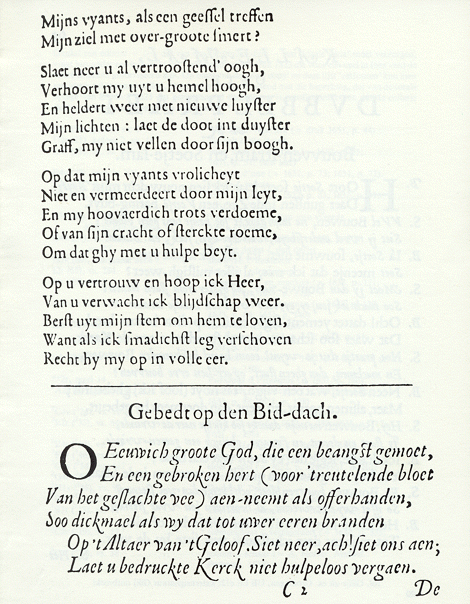 Mijns vyants, als een geessel treffen
Mijn ziel met over-groote smert?
Slaet neer u al vertroostend' oogh,
Verhoort my uyt u hemel hoogh,
En heldert weer met nieuwe luyster
Mijn lichten: laet de doot int duyster
Graff, my niet vellen door sijn boogh.
Op dat mijn vyants vrolicheyt
Niet en vermeerdert door mijn leyt,
En my hoovaerdich trots verdoeme,
Of van sijn cracht of sterckte roeme,
Om dat ghy met u hulpe beyt.
Op u vertrouw en hoop ick Heer,
Van u verwacht ick blijdschap weer.
Berst uyt mijn stem om hem te loven,
Want als ick smadichst leg verschoven
Recht hy my op in volle eer.
Gebedt op den Bid-dach.
O Eeuwich groote God, die een beangst gemoet,
En een gebroken hert (voor 'treutelende bloet
Van het geslachte vee) aen-neemt als offerhanden,
Soo dickmael als wy dat tot uwer eeren branden
Op 't Altaer van 't Geloof. Siet neer, ach! siet ons aen;
Laet u bedruckte Kerck niet hulpeloos vergaen.
C 2 De